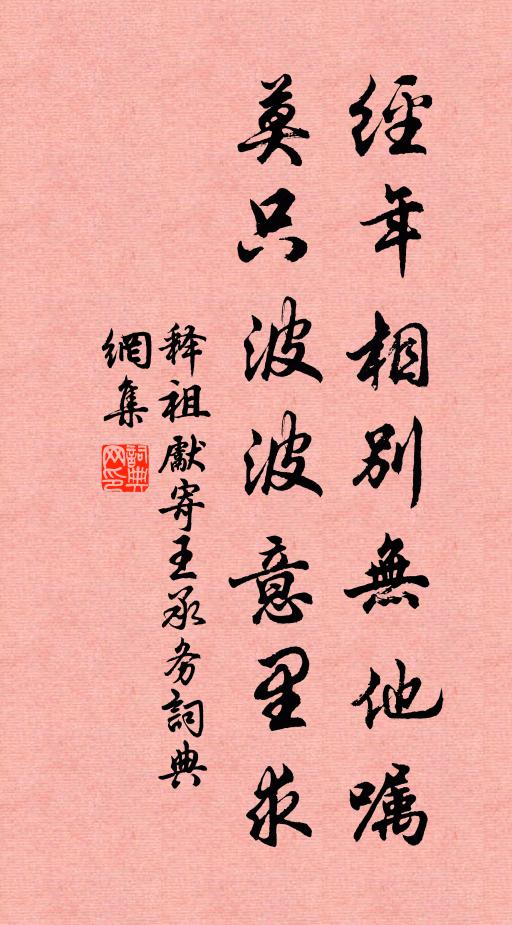 經年相別無他嘱
莫只波波意里求
释祖獻寄王承务詞典
網集
詞典
网印